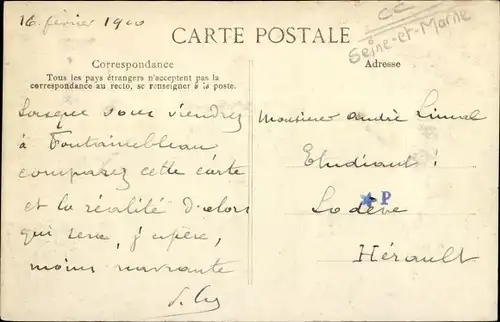 16 février 1900
CC
Seine-et-Marne
CARTE POSTALE
Correspondance
Tous les pays étrangers n'acceptent pas la
correspondance au recto, se renseigner à la poste.
Adresse
Lorsque vous viendrez
à Fontainebleau
comparez cette carte
et la réalité d'alors
qui sera, j'espère,
moins navrante
Monsieur André
Etudiant
P
Lodève
Hérault